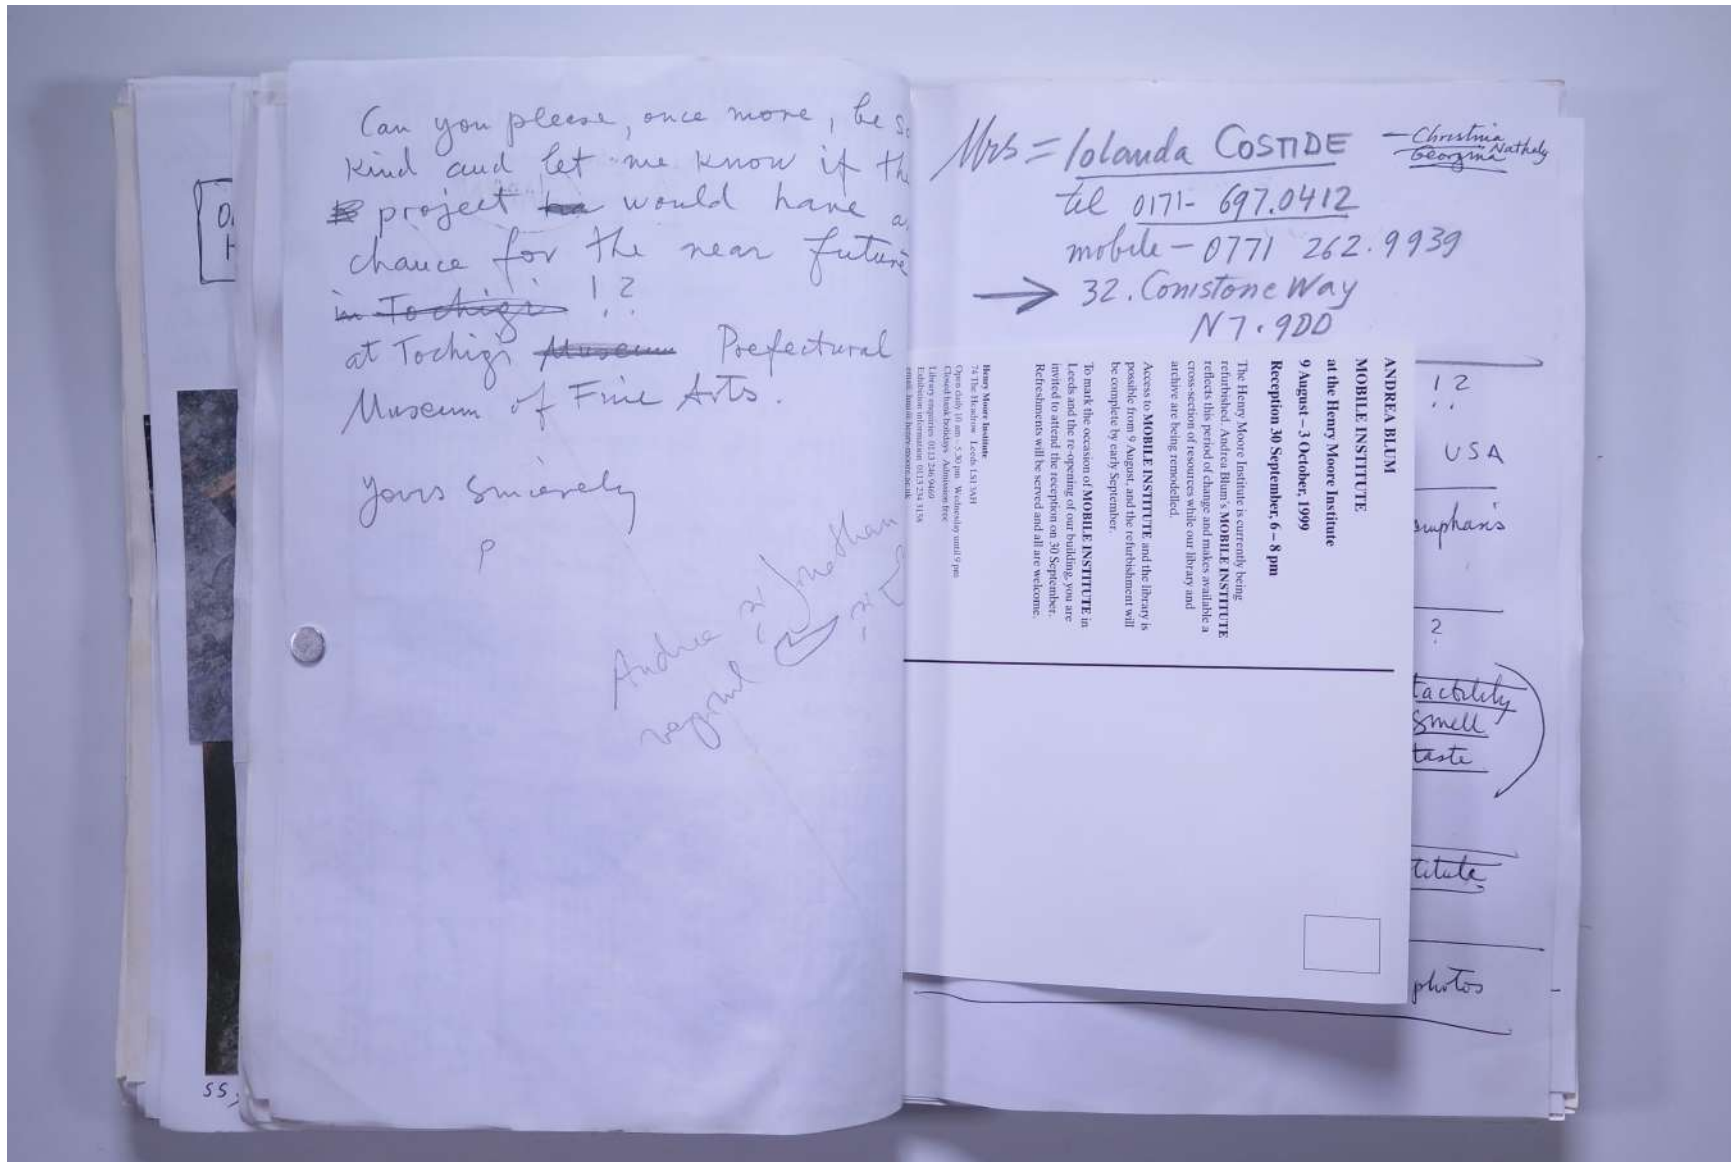 Can you please, once more, be so
kind and let me know if the
project would have a
chance for the near future
in Tochigi !?
at Tochigi Museum Prefectural
Museum of Fine Arts.
Yours Sincerely
P
Andrea ?! Jonathan
?!
SS,
Mrs = Iolanda COSTIDE
— Christina
Georgina Nathaly
tel 0171- 697.0412
mobile - 0771 262.9939
→ 32. Conistone Way
N7.9DD
ANDREA BLUM
MOBILE INSTITUTE
at the Henry Moore Institute
9 August – 3 October, 1999
Reception 30 September, 6 – 8 pm
The Henry Moore Institute is currently being
refurbished. Andrea Blum's MOBILE INSTITUTE
reflects this period of change and makes available a
cross-section of resources while our library and
archive are being remodelled.
Access to MOBILE INSTITUTE and the library is
possible from 9 August, and the refurbishment will
be complete by early September.
To mark the occasion of MOBILE INSTITUTE in
Leeds and the re-opening of our building, you are
invited to attend the reception on 30 September.
Refreshments will be served and all are welcome.
Henry Moore Institute
74 The Headrow Leeds LS1 3AH
Open daily 10 am – 5.30 pm Wednesday until 9 pm
Closed bank holidays Admission free
Library enquiries 0113 246 9469
Exhibition information 0113 234 3158
!?
USA
emphasis
?
tactility
smell
taste
titute
photos